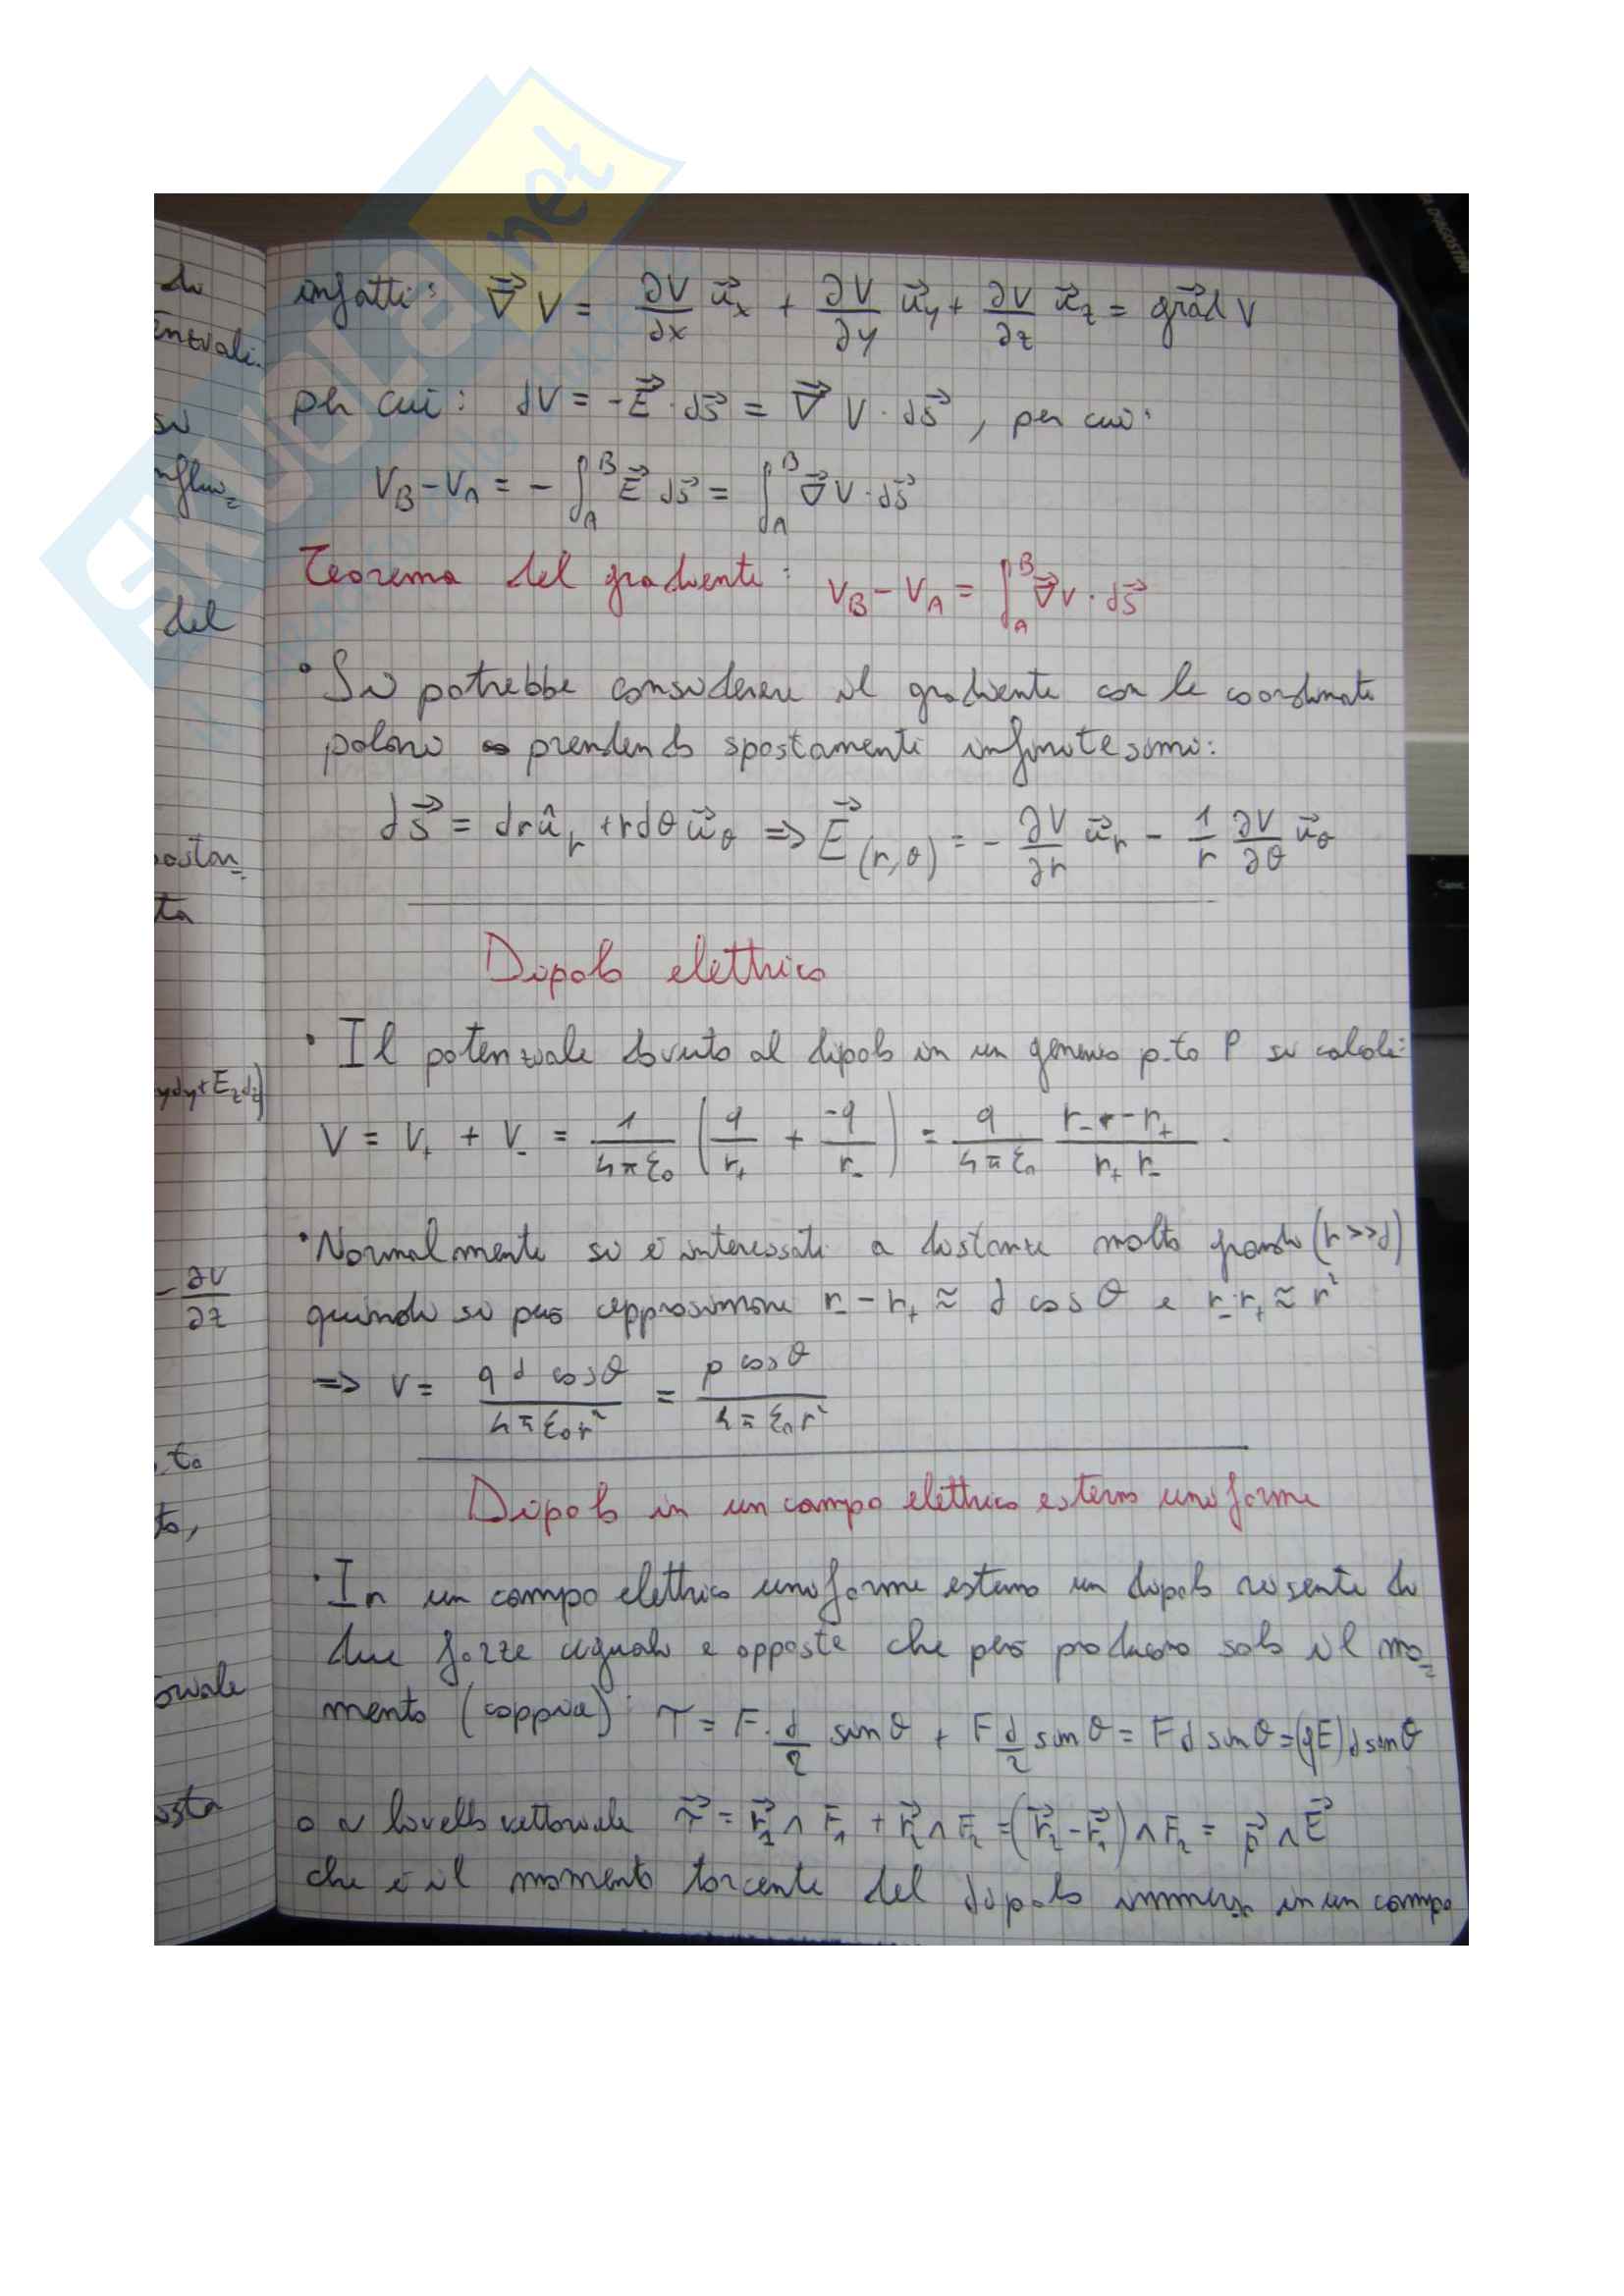 infatti: ∇⃗ V = ∂V/∂x u⃗x + ∂V/∂y u⃗y + ∂V/∂z u⃗z = grad V
per cui: dV = -E⃗ · ds⃗ = ∇⃗ V · ds⃗, per cui:
VB - VA = - ∫_A^B E⃗ ds⃗ = ∫_A^B ∇⃗ V · ds⃗
Teorema del gradiente: VB - VA = ∫_A^B ∇⃗ V · ds⃗
• Si potrebbe considerare il gradiente con le coordinate
polari prendendo spostamenti infinitesimi:
ds⃗ = dr û_r + r dθ u⃗_θ ⇒ E⃗(r,θ) = - ∂V/∂r u⃗_r - 1/r ∂V/∂θ u⃗_θ
Dipolo elettrico
• Il potenziale dovuto al dipolo in un generico p.to P si calcola:
V = V₊ + V₋ = 1/4πε₀ (q/r₊ + -q/r₋) = q/4πε₀ r₋ - r₊/r₊ r₋ .
• Normalmente si è interessati a distanze molto grandi (r>>d)
quindi si può approssimare r₋ - r₊ ≈ d cos θ e r₋·r₊ ≈ r²
⇒ V = q d cosθ/4πε₀r² = p cosθ/4πε₀r²
Dipolo in un campo elettrico esterno uniforme
• In un campo elettrico uniforme esterno un dipolo risente di
due forze uguali e opposte che però producono solo il mo=
mento (coppia): τ = F·d/2 sinθ + F d/2 sinθ = F d sinθ = (qE) d sinθ
o a livello vettoriale τ⃗ = r⃗₁ ∧ F₁ + r⃗₂ ∧ F₂ = (r⃗₂ - r⃗₁) ∧ F₂ = p⃗ ∧ E⃗
che è il momento torcente del dipolo immerso in un campo
di
enziali.
si
nflui=
del
postan=
ta
ydy+E_z dz)
- ∂V/∂z
to
to,
osta
SKUOLA.net